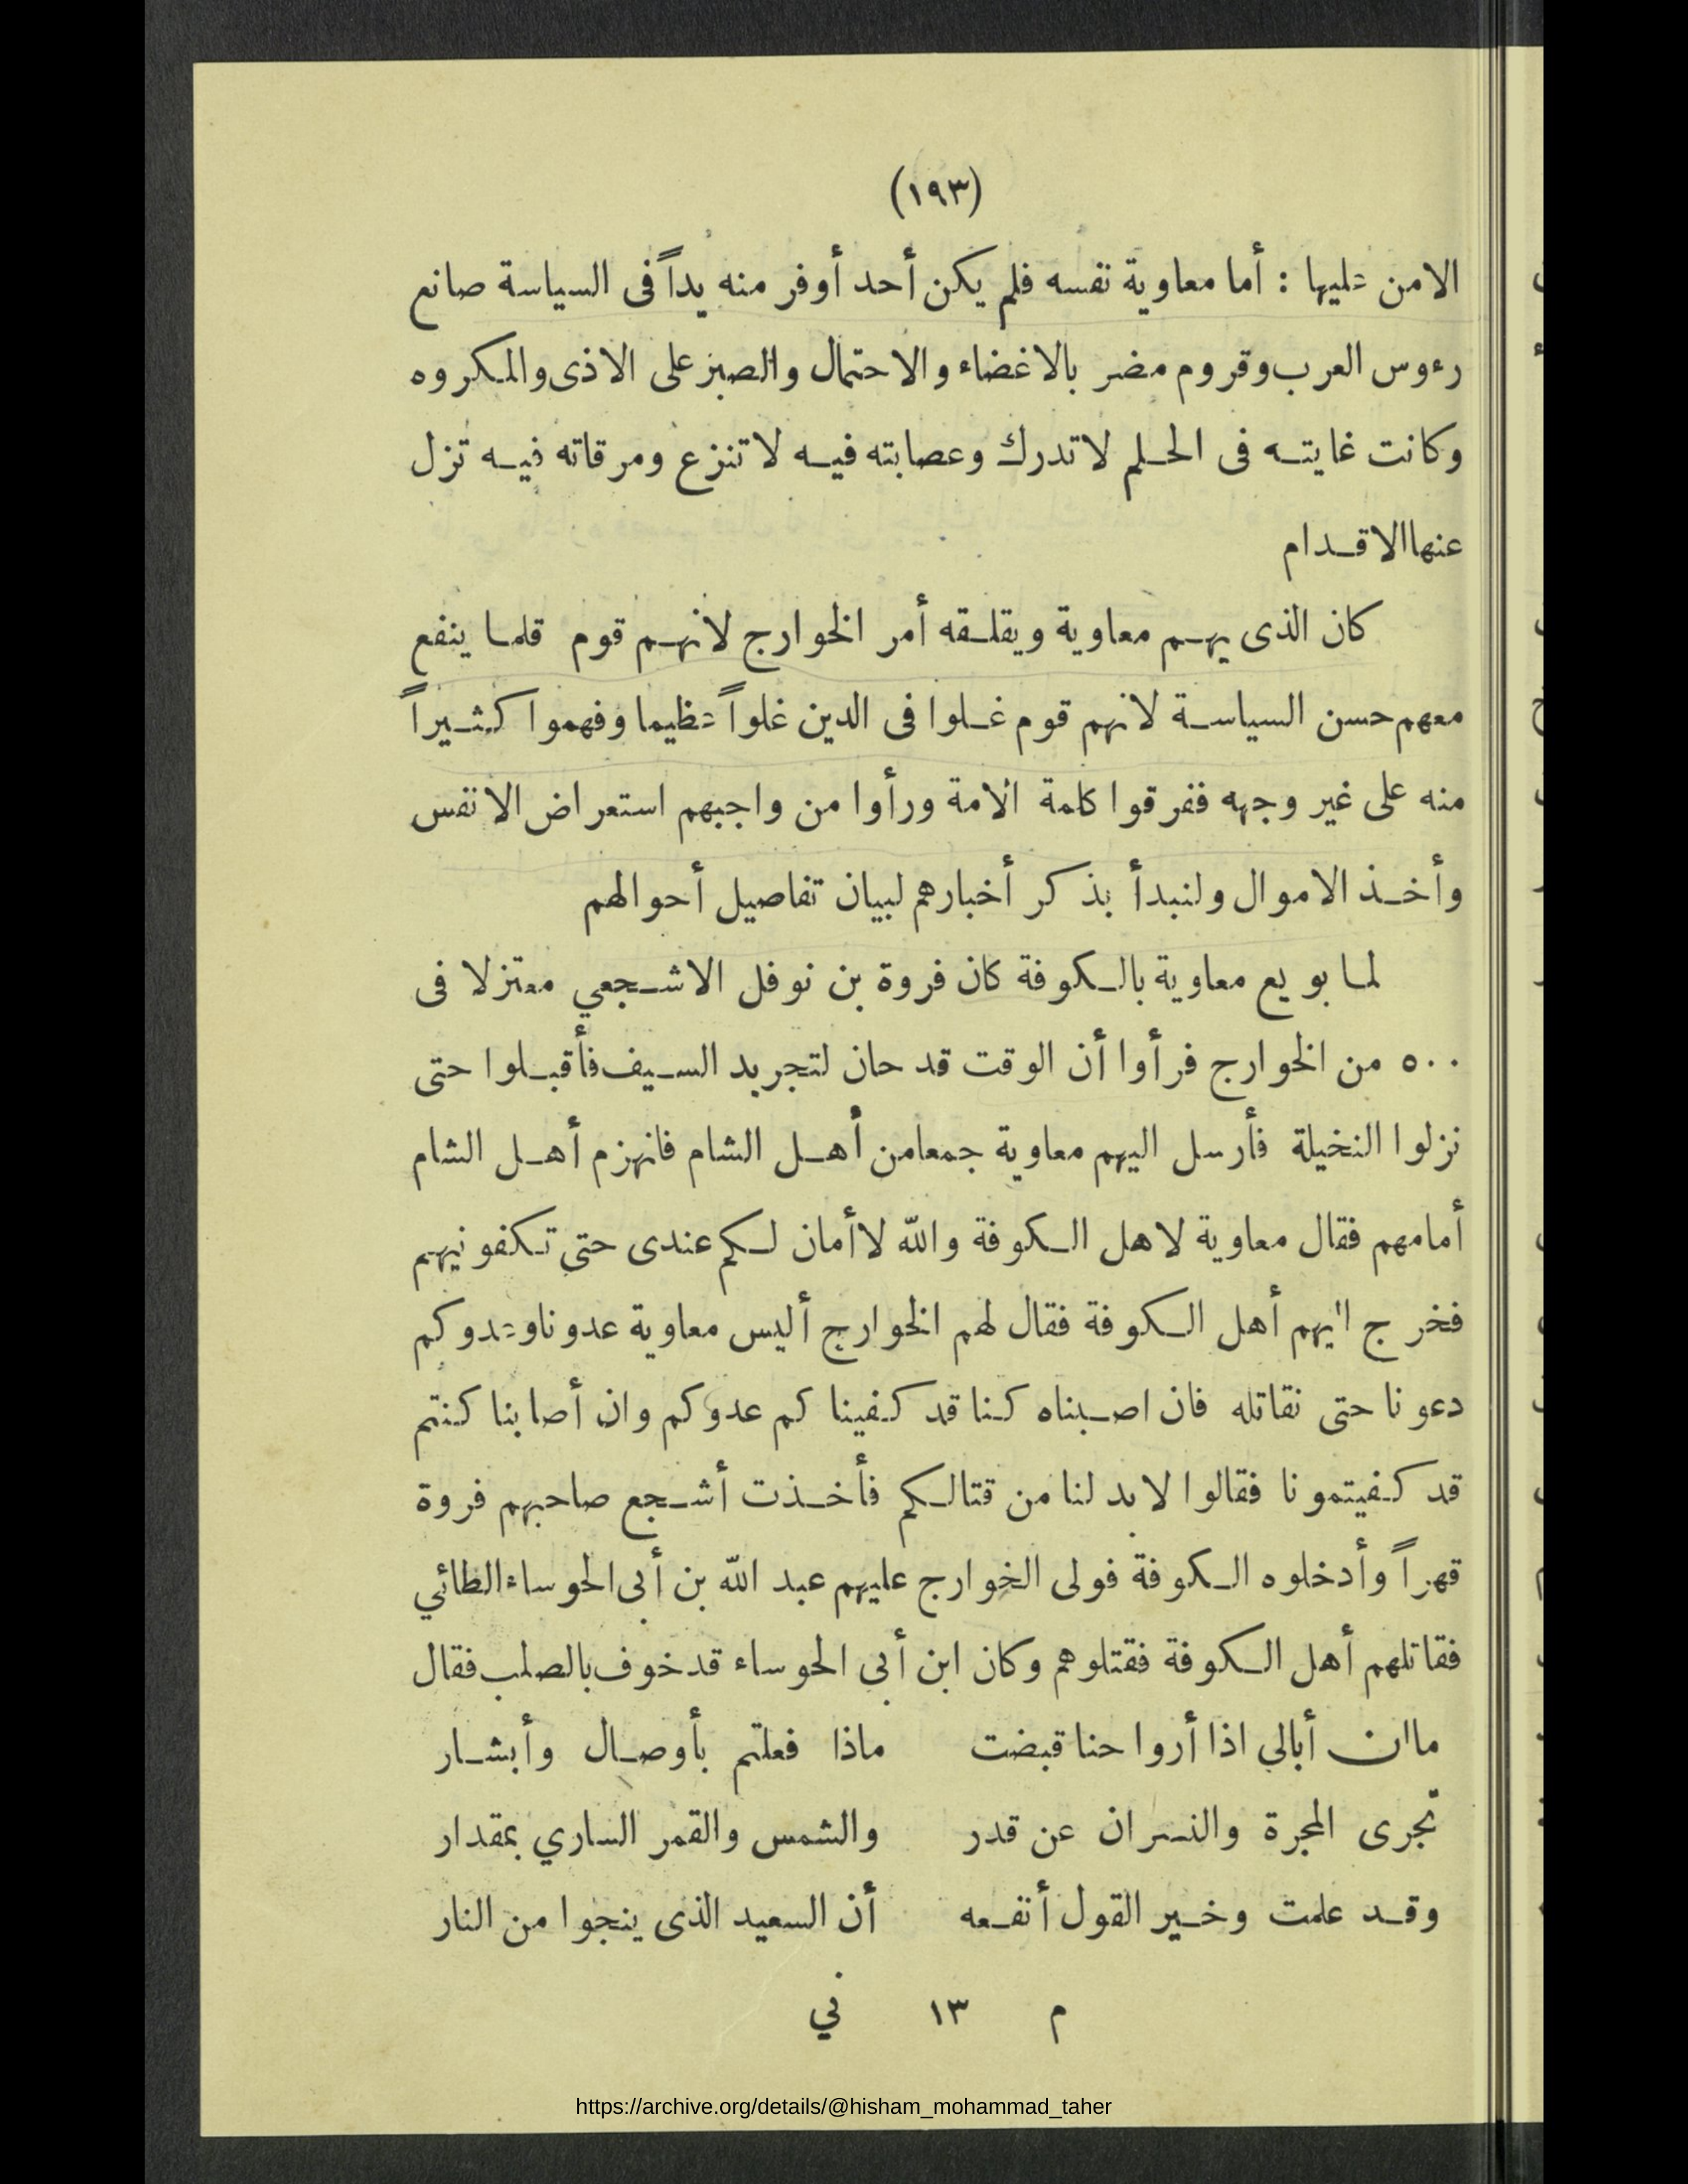 (١٩٣)
الامن عليها : أما معاوية نفسه فلم يكن أحد أوفر منه يداً فى السياسة صانع
رءوس العرب وقروم مضر بالاغضاء والاحتمال والصبر على الاذى والمكروه
وكانت غايته فى الحلم لا تدرك وعصابته فيه لا تنزع ومرقاته فيه تزل
عنها الاقدام
كان الذى يهم معاوية ويقلقه أمر الخوارج لانهم قوم قلما ينفع
معهم حسن السياسة لانهم قوم غلوا فى الدين غلواً عظيما وفهموا كثيراً
منه على غير وجهه ففرقوا كلمة الامة ورأوا من واجبهم استعراض الانفس
وأخذ الاموال ولنبدأ بذكر أخبارهم لبيان تفاصيل أحوالهم
لما بويع معاوية بالكوفة كان فروة بن نوفل الاشجعي معتزلا فى
٥٠٠ من الخوارج فرأوا أن الوقت قد حان لتجريد السيف فأقبلوا حتى
نزلوا النخيلة فأرسل اليهم معاوية جمعا من أهل الشام فانهزم أهل الشام
أمامهم فقال معاوية لاهل الكوفة والله لا أمان لكم عندى حتى تكفونيهم
فخرج اليهم أهل الكوفة فقال لهم الخوارج أليس معاوية عدونا وعدوكم
دعونا حتى نقاتله فان اصبناه كنا قد كفيناكم عدوكم وان أصابنا كنتم
قد كفيتمونا فقالوا لا بد لنا من قتالكم فأخذت أشجع صاحبهم فروة
قهراً وأدخلوه الكوفة فولى الخوارج عليهم عبد الله بن أبى الحوساء الطائي
فقاتلهم أهل الكوفة فقتلوهم وكان ابن أبى الحوساء قد خوف بالصلب فقال
ما ان أبالى اذا أرواحنا قبضت ماذا فعلتم بأوصال وأبشار
تجرى المجرة والنسران عن قدر والشمس والقمر الساري بمقدار
وقد علمت وخير القول أنفعه أن السعيد الذى ينجوا من النار
م ١٣ ني
https://archive.org/details/@hisham_mohammad_taher